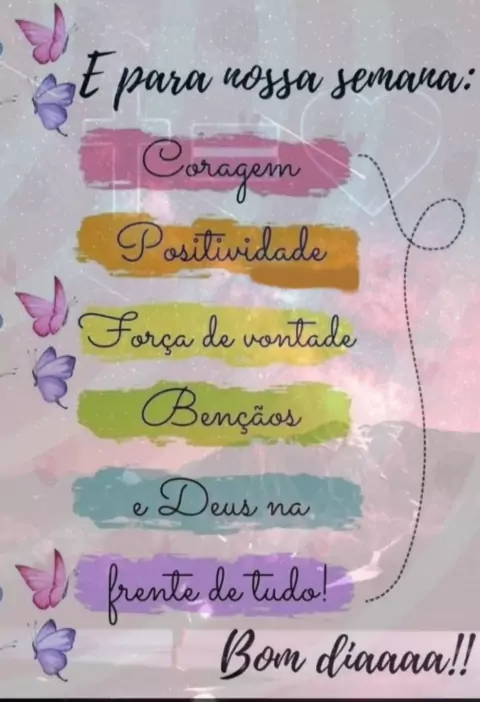 E para nossa semana:
Coragem
Positividade
Força de vontade
Bençãos
e Deus na
frente de tudo!
Bom díaaaa!!